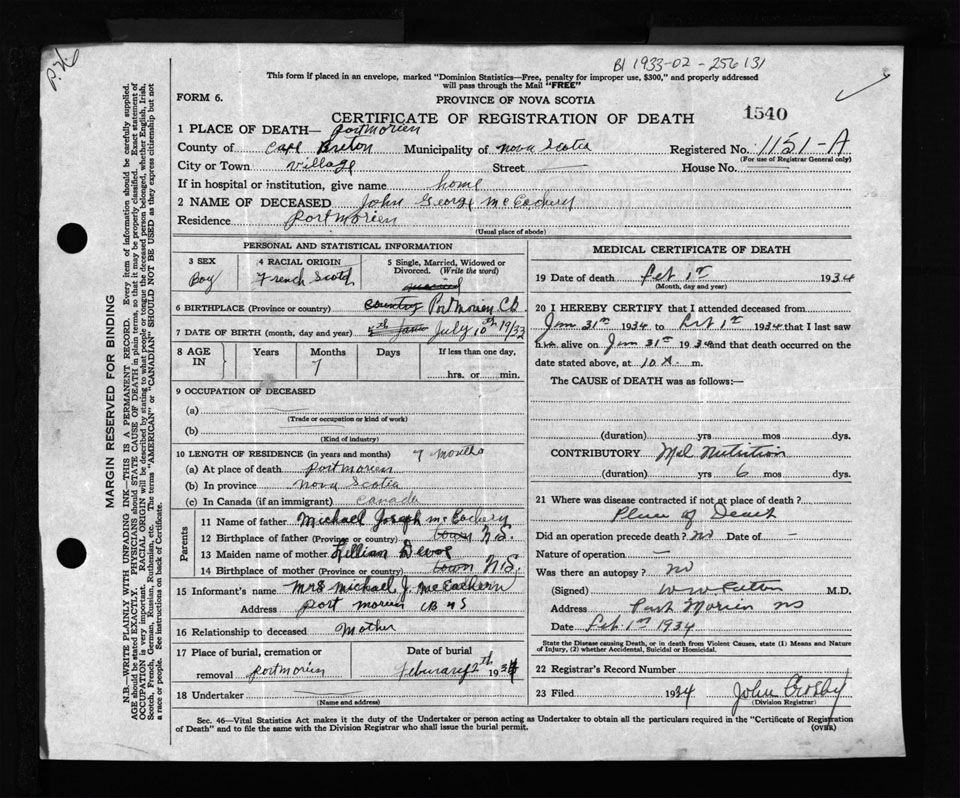 P. 26
B1 1933-02-256131
This form if placed in an envelope, marked "Dominion Statistics—Free, penalty for improper use, $300," and properly addressed
will pass through the Mail "FREE"
FORM 6.
PROVINCE OF NOVA SCOTIA
CERTIFICATE OF REGISTRATION OF DEATH
1540
1 PLACE OF DEATH— Portmorien
County of Cape Breton Municipality of Nova Scotia Registered No. 1151-A
(For use of Registrar General only)
City or Town Village Street — House No.
If in hospital or institution, give name home
2 NAME OF DECEASED John George McEachery
Residence Portmorien
(Usual place of abode)
PERSONAL AND STATISTICAL INFORMATION
3 SEX 4 RACIAL ORIGIN 5 Single, Married, Widowed or Divorced. (Write the word)
Boy French Scotch
6 BIRTHPLACE (Province or country) country Port Morien C.B.
7 DATE OF BIRTH (month, day and year) July 10th 1933
8 AGE IN Years Months Days If less than one day,
7
hrs. or min.
9 OCCUPATION OF DECEASED
(a)
(Trade or occupation or kind of work)
(b)
(Kind of industry)
10 LENGTH OF RESIDENCE (in years and months) 7 months
(a) At place of death Portmorien
(b) In province Nova Scotia
(c) In Canada (if an immigrant) Canada
Parents
11 Name of father Michael Joseph McEachery
12 Birthplace of father (Province or country) town N.S.
13 Maiden name of mother Lillian Devoe
14 Birthplace of mother (Province or country) town N.S.
15 Informant's name Mrs Michael J. McEachern
Address Port Morien CB NS
16 Relationship to deceased Mother
17 Place of burial, cremation or removal Portmorien
Date of burial Feburary 2th 1934
18 Undertaker
(Name and address)
MEDICAL CERTIFICATE OF DEATH
19 Date of death Feb 1st 1934
(Month, day and year)
20 I HEREBY CERTIFY that I attended deceased from
Jan 31st 1934 to Feb 1st 1934 that I last saw
him alive on Jan 31st 1934 and that death occurred on the
date stated above, at 10 A. m.
The CAUSE of DEATH was as follows:—
(duration) yrs mos dys.
CONTRIBUTORY Mal Nutrition
(duration) yrs 6 mos dys.
21 Where was disease contracted if not at place of death?
Place of Death
Did an operation precede death? no Date of —
Nature of operation —
Was there an autopsy? no
(Signed) M.D.
Address Port Morien NS
Date Feb. 1st 1934
State the Disease causing Death, or in death from Violent Causes, state (1) Means and Nature
of Injury, (2) whether Accidental, Suicidal or Homicidal.
22 Registrar's Record Number
23 Filed 1934 John Crosby
(Division Registrar)
Sec. 46—Vital Statistics Act makes it the duty of the Undertaker or person acting as Undertaker to obtain all the particulars required in the "Certificate of Registration
of Death" and to file the same with the Division Registrar who shall issue the burial permit.
(OVER)
MARGIN RESERVED FOR BINDING
N.B.—WRITE PLAINLY WITH UNFADING INK—THIS IS A PERMANENT RECORD. Every item of information should be carefully supplied.
AGE should be stated EXACTLY. PHYSICIANS should STATE CAUSE OF DEATH in plain terms, so that it may be properly classified. Exact statement of
OCCUPATION is very important. RACIAL ORIGIN will be described by stating to what people or tongue the deceased person belonged, whether English, Irish,
Scotch, French, German, Russian, Ruthenian, etc. The terms "AMERICAN" or "CANADIAN" SHOULD NOT BE USED as they express citizenship but not
a race or people. See instructions on back of Certificate.